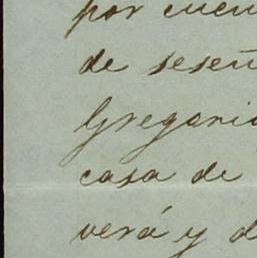 por cuen
de seseñ
Gregorio
casa de
verá y d